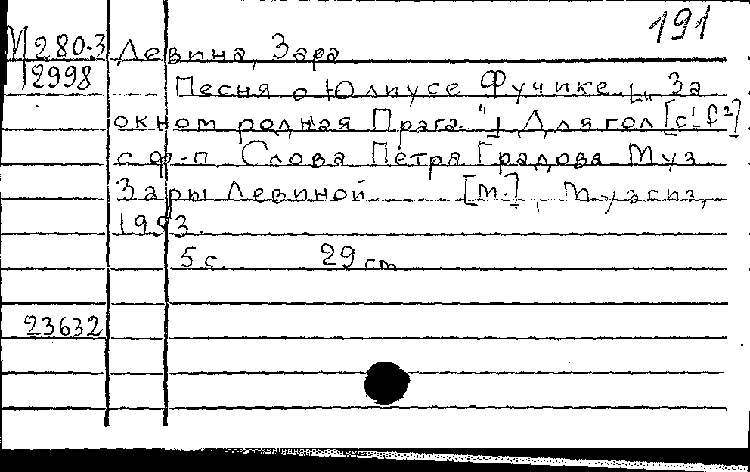 191
М 280.3 Левина, Зара
12998 Песня о Юлиусе Фучике. [„За
окном родная Прага."] Для гол [c¹-f²]
с ф-п. Слова Петра Градова Муз
Зары Левиной [М.], Музгиз,
1953.
5 с. 29 cm
23632